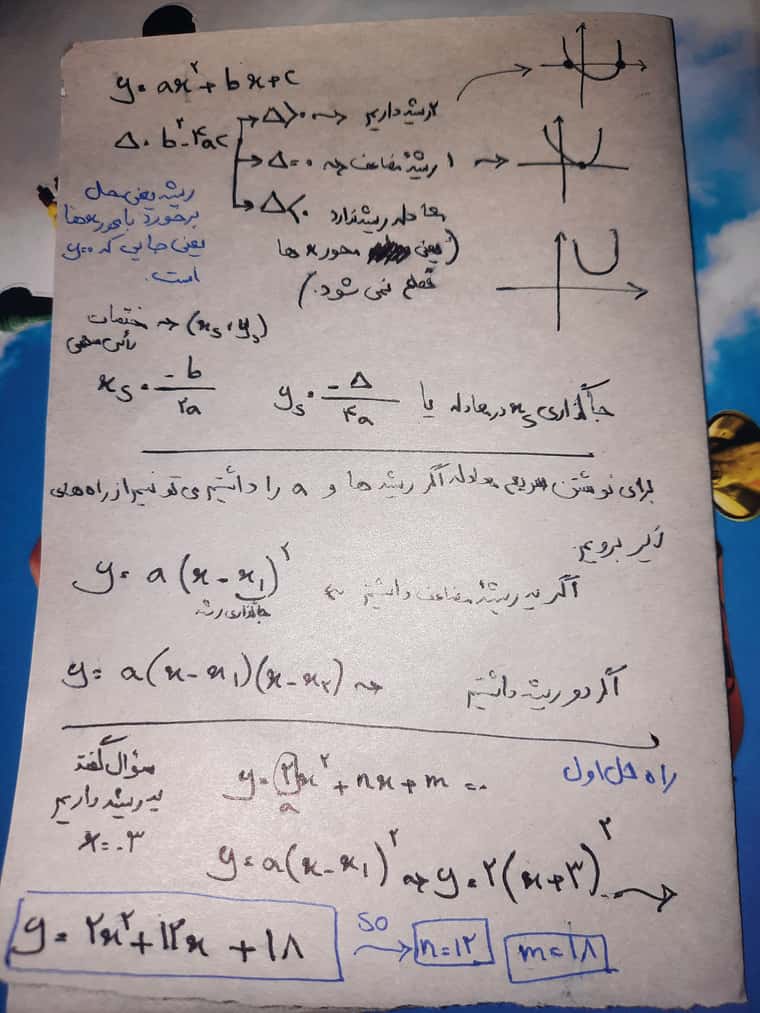 y = ax² + bx + c
Δ = b² - ۴ac
Δ > ۰ ⇝ ۲ ریشه داریم →
Δ = ۰ ⇝ ۱ ریشهٔ مضاعف →
Δ < ۰ معادله ریشه ندارد
(یعنی محور x ها
قطع نمی شود.)
ریشه یعنی محل
برخورد با محور xها
یعنی جایی که y=۰
است.
مختصات رأس سهمی → (xₛ , yₛ)
xₛ = -b/۲a
yₛ = -Δ/۴a یا جاگذاری xₛ در معادله
برای نوشتن سریع معادله اگر ریشه ها و a را داشتیم می تونیم از راه های
زیر برویم
اگر یه ریشهٔ مضاعف داشتیم ⇝ y = a(x - x₁)²
جاگذاری ریشه
y = a(x - x₁)(x - x₂) ⇝ اگر دو ریشه داشتیم
راه حل اول
y = ۲x² + nx + m = ۰
a
سؤال گفته
یه ریشه داریم
x = -۳
y = a(x - x₁)² ⇝ y = ۲(x + ۳)² →
y = ۲x² + ۱۲x + ۱۸ so → n = ۱۲ m = ۱۸